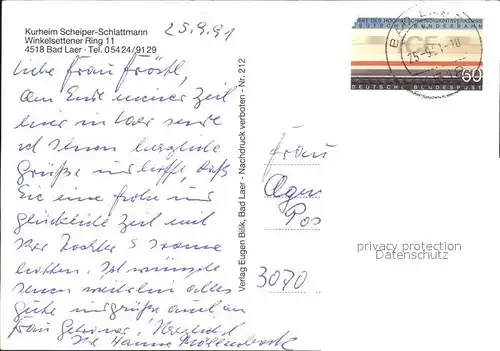 25.9.91
Kurheim Scheiper-Schlattmann
Winkelsettener Ring 11
4518 Bad Laer · Tel. 05424/9129
Liebe Frau Fröstl,
Am Ende meiner Zeit
hier in Laer sende
ich Ihnen herzliche
Grüße und hoffe, daß
Sie eine frohe und
glückliche Zeit mit
Ihrer Tochter
hatten. Ich wünsche
Ihnen weiterhin alles
Gute und grüße auch an
Frau Herzlichst
Ihre Hanna
Verlag Eugen Bilik, Bad Laer - Nachdruck verboten - Nr. 212
JAHR DES HOCHGESCHWINDIGKEITSVERKEHRS
DEUTSCHE BUNDESBAHN
ICE
60
DEUTSCHE BUNDESPOST
25.-9.91-18
Frau
Agen
Pos
3070
privacy protection
Datenschutz